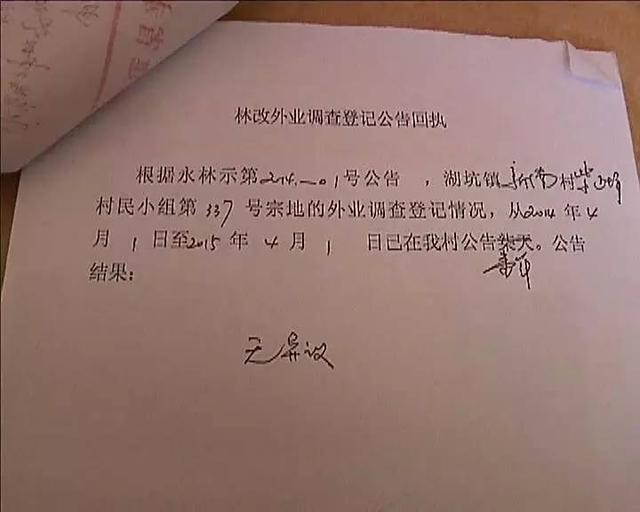 林改外业调查登记公告回执
根据永林示第214.—01号公告 ，湖坑镇新南村
村民小组第 337 号宗地的外业调查登记情况，从2014 年 4
月 1 日至2015 年 4 月 1 日已在我村公告 天。公告
结果：
无异议